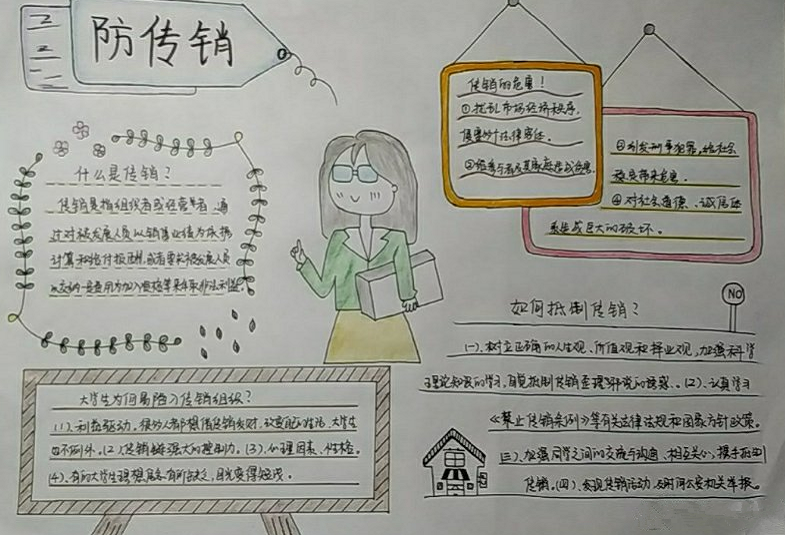 防传销
什么是传销？
传销是指组织者或经营者，通
过对被发展人员以销售业绩为依据
计算和给付报酬，或者要求被发展人员
以交纳一定费用为加入资格等来牟取非法利益。
传销的危害！
①扰乱市场经济秩序，
②给参与者及其家庭造成伤害，
③引发刑事犯罪，给社会
稳定带来危害。
④对社会道德、诚信体
系造成巨大的破坏。
NO
如何抵制传销？
（一）、树立正确的人生观、价值观和择业观，加强科学
理论知识的学习，自觉抵制传销歪理邪说的诱惑。（2）、认真学习
《禁止传销条例》等有关法律法规和国家方针政策。
（三）、加强同学之间的交流与沟通、相互关心，携手抵制
传销。（四）、发现传销活动，及时向公安机关举报。
大学生为何易陷入传销组织？
（1）、利益驱动，很多人都想借传销发财，改变自己的生活，大学生
也不例外。（2）、传销有强大的控制力。（3）、心理因素、性格。
（4）、有的大学生理想信念有所缺乏，目光变得短浅。